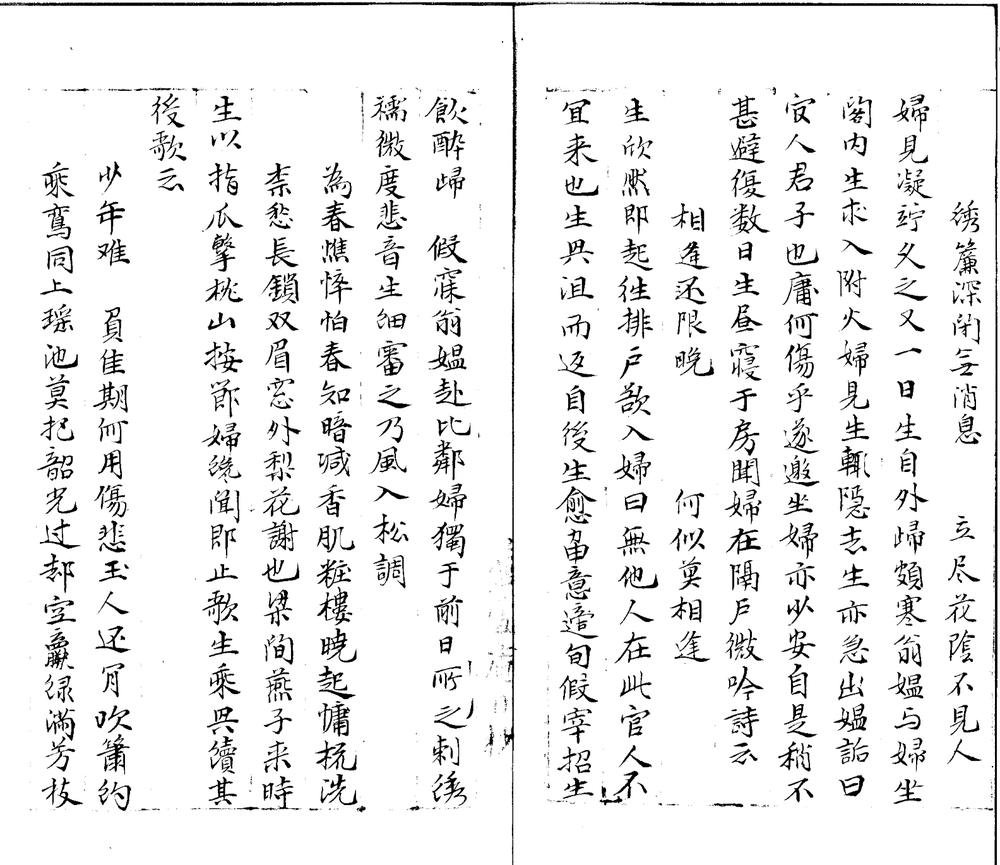 绣簾深闭无消息　立尽花陰不见人
婦見凝竚久之又一日生自外歸頗寒翁媪与婦坐
閣内生求入附火婦見生輙隠去生亦急出媪詣曰
官人君子也庸何傷乎遂邀坐婦亦少安自是稍不
甚避復数日生昼寝于房聞婦在隔戶微吟詩云
相逢还限晚　何似莫相逢
生欣然即起往排戶欲入婦曰無他人在此官人不
宜来也生興沮而返自後生愈留意適旬假宰招生
飲醉歸　假寐翁媪赴比鄰婦獨于前日所之刺绣
襦微度悲音生细審之乃風入松調
為春憔悴怕春知暗减香肌粧樓曉起慵梳洗
柰愁長鎖双眉窓外梨花謝也梁间燕子来時
生以指爪擊桃山按節婦纔聞即止歌生乘興續其
後歌云
少年难　負佳期何用傷悲玉人还肎吹簫约
乘鸞同上瑶池莫把韶光过却空贏绿滿芳枝